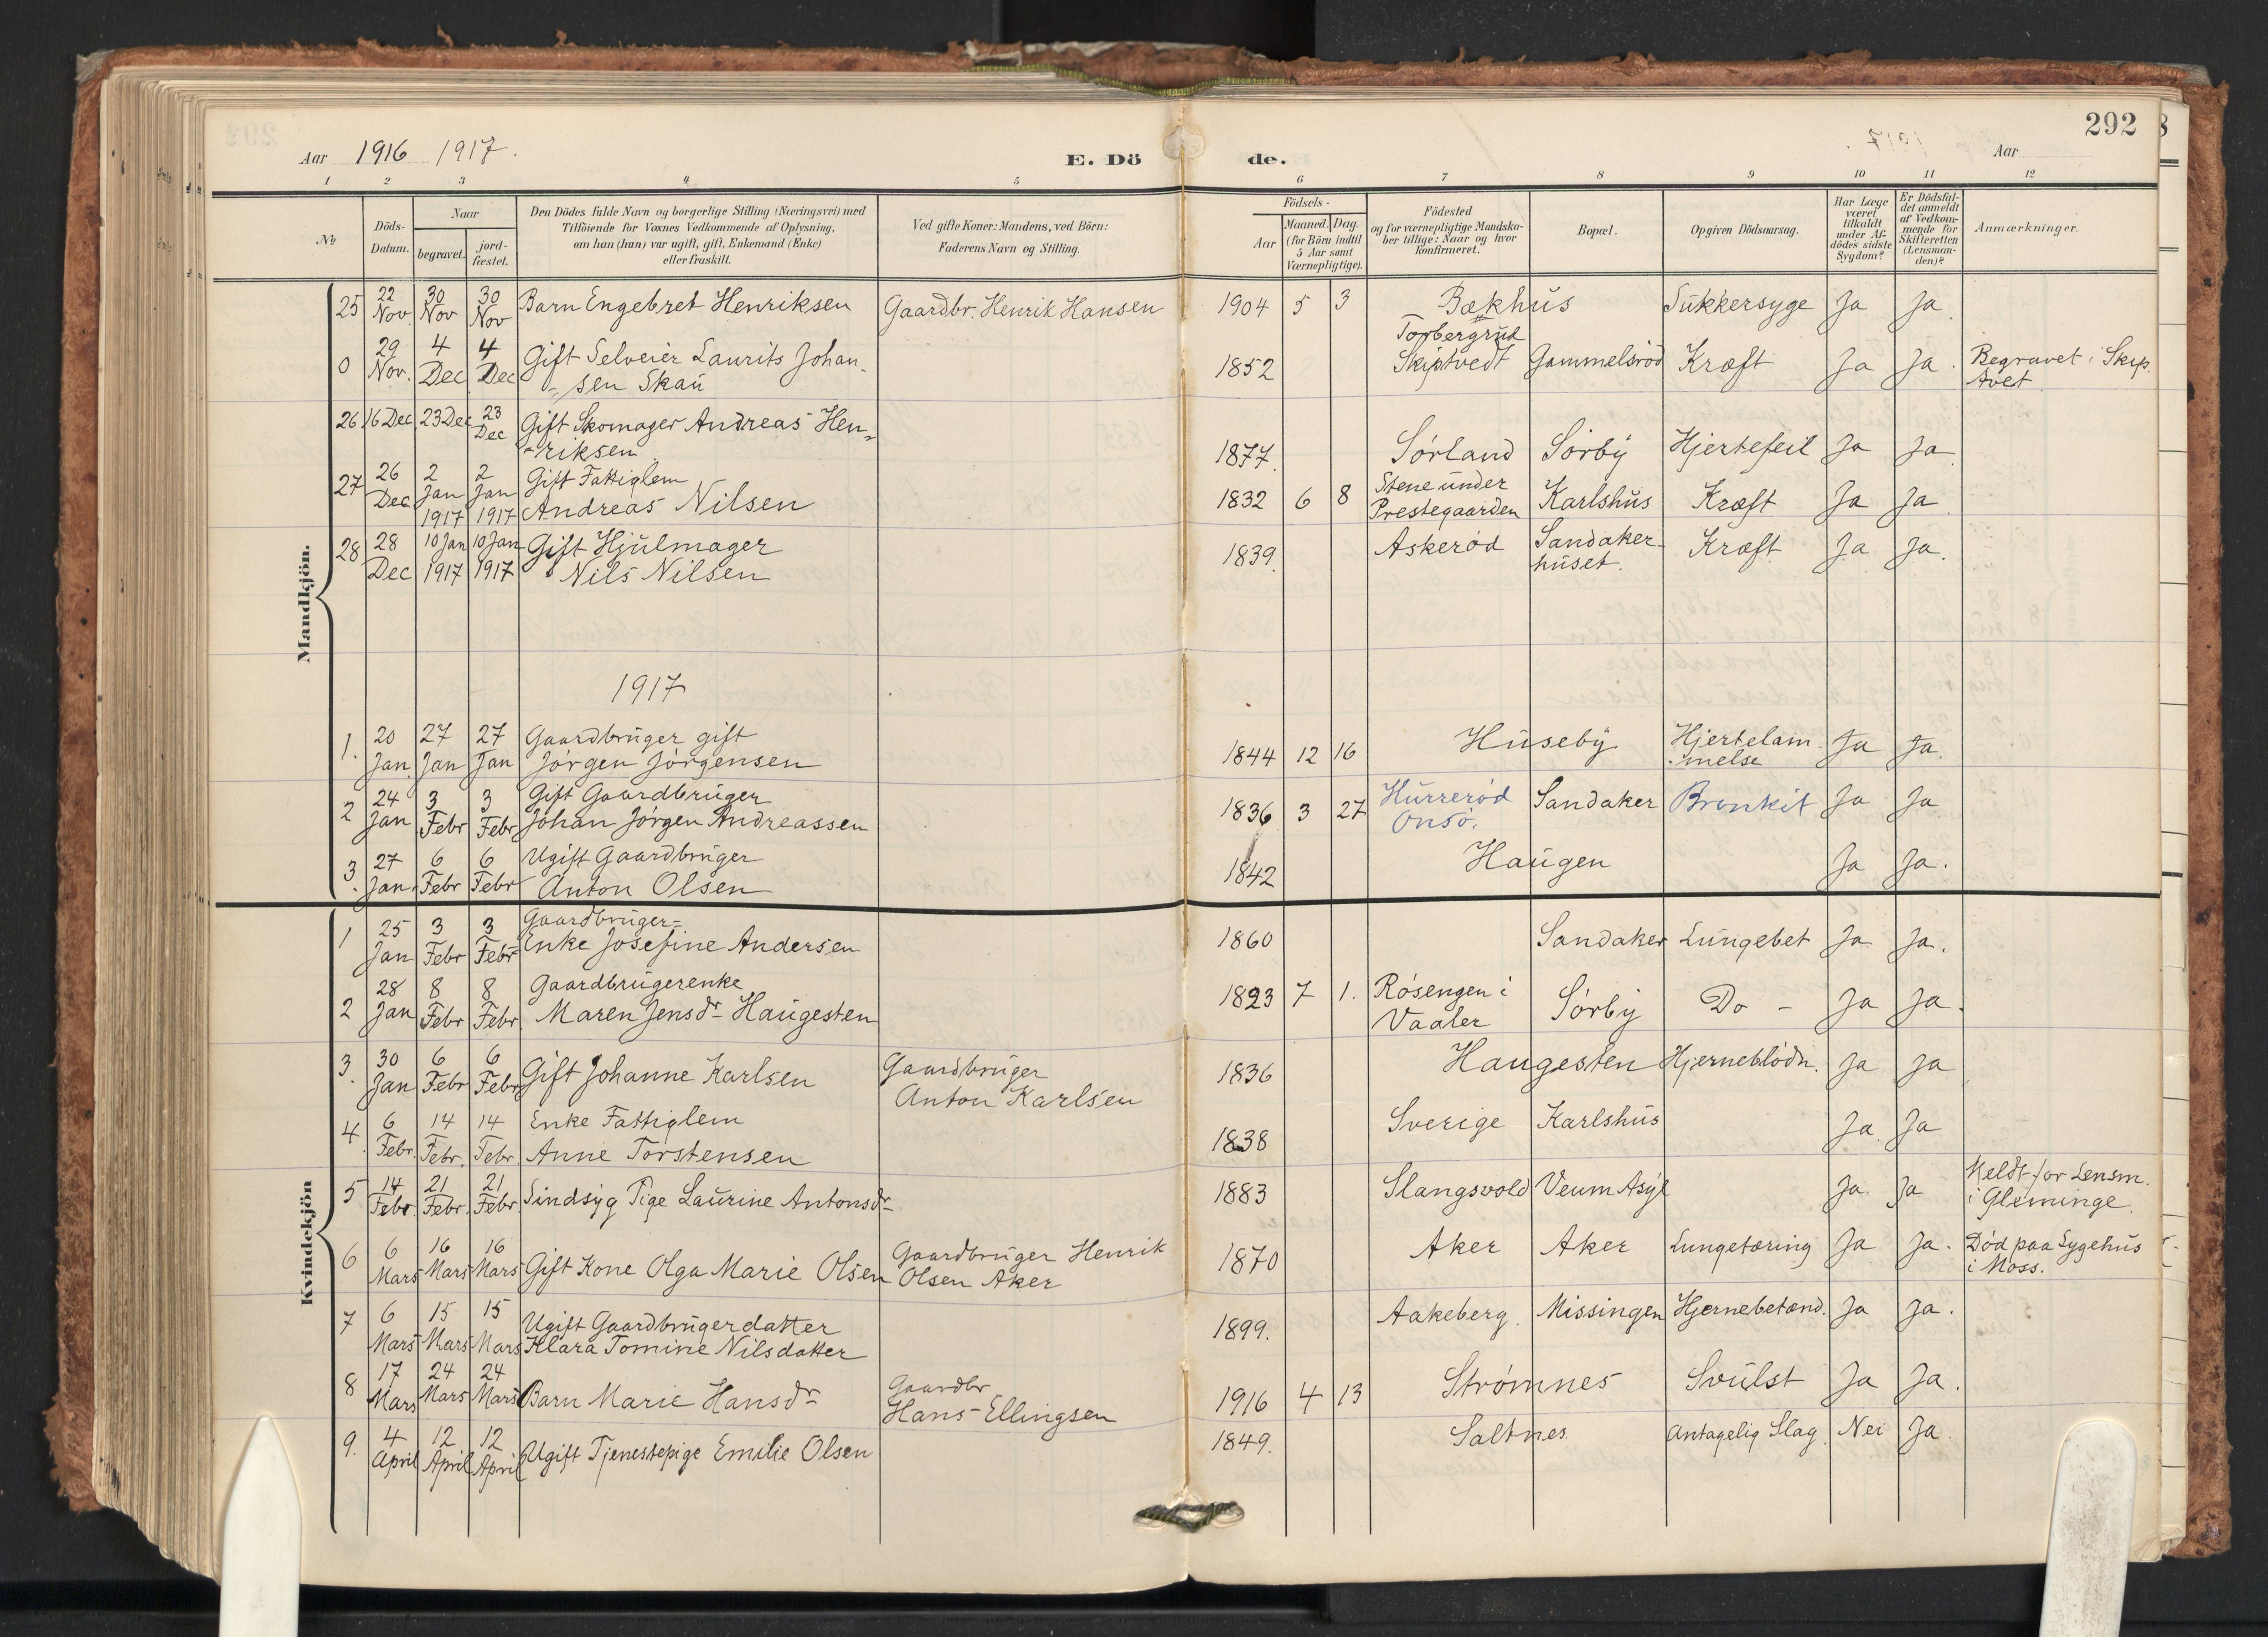 292
Aar 1916 1917.
E. Dö de.
Aar
1 2 3 4 5 6 7 8 9 10 11 12
No
Döds-Datum.
Naar
begravet.
jord-fæstet.
Den Dödes fulde Navn og borgerlige Stilling (Næringsvei) med
Tilföiende for Voxnes Vedkommende af Oplysning,
om han (hun) var ugift, gift, Enkemand (Enke)
eller fraskilt.
Ved gifte Koner: Mandens, ved Börn:
Faderens Navn og Stilling.
Födsels-
Aar
Maaned. Dag.
(for Börn indtil
5 Aar samt
Værnepligtige).
Födested
og for værnepligtige Mandska-
ber tillige: Naar og hvor
konfirmeret.
Bopæl.
Opgiven Dödsaarsag.
Har Læge
været
tilkaldt
under Af-
dödes sidste
Sygdom?
Er Dödsfal-
det anmeldt
af Vedkom-
mende for
Skifteretten
(Lensman-
den)?
Anmærkninger.
Mandkjön.
25 22 Nov 30 Nov 30 Nov Barn Engebret Henriksen Gaardbr. Henrik Hansen 1904 5 3 Bækhus Sukkersyge Ja Ja.
0 29 Nov. 4 Dec 4 Dec Gift Selveier Laurits Johan-
sen Skau 1852 Torbergrud
Skiptvedt Gammelsrød Kræft Ja Ja. Begravet i Skip-
tvet
26 16 Dec 23 Dec 23 Dec Gift Skomager Andreas Hen-
riksen 1877. Sørland Sørby Hjertefeil Ja Ja
27 26 Dec 2 Jan 1917 2 Jan 1917 Gift Fattiglem
Andreas Nilsen 1832 6 8 Stene under
Prestegaarden Karlshus Kræft Ja Ja
28 28 Dec 10 Jan 1917 10 Jan 1917 Gift Hjulmager
Nils Nilsen 1839. Askerød Sandaker-
huset. Kræft Ja Ja.
1917
1. 20 Jan 27 Jan 27 Jan Gaardbruger gift
Jørgen Jørgensen 1844 12 16 Huseby Hjertelam-
melse Ja Ja.
2 24 Jan 3 Febr 3 Febr Gift Gaardbruger
Johan Jørgen Andreassen 1836 3 27 Hurrerød
Onsø. Sandaker Bronkit Ja Ja
3. 27 Jan. 6 Febr 6 Febr Ugift Gaardbruger
Anton Olsen 1842 Haugen Ja Ja.
Kvindekjön
1 25 Jan 3 Febr 3 Febr Gaardbruger-
Enke Josefine Andersen 1860 Sandaker Lungebet Ja Ja.
2 28 Jan 8 Febr 8 Febr Gaardbrugerenke
Maren Jensdr Haugesten 1823 7 1. Røsengen i
Vaaler Sørby Do - Ja Ja.
3. 30 Jan 6 Febr 6 Febr Gift Johanne Karlsen Gaardbruger
Anton Karlsen 1836 Haugesten Hjerneblødn. Ja Ja
4. 6 Febr. 14 Febr. 14 Febr Enke Fattiglem
Anne Torstensen 1838 Sverige Karlshus Ja Ja
5 14 Febr. 21 Febr. 21 Febr. Sindsyg Pige Laurine Antonsdr 1883 Slangsvold Veum Asyl Ja. Ja Meldt for Lensm.
i Glemminge.
6 6 Mars 16 Mars 16 Mars Gift Kone Olga Marie Olsen Gaardbruger Henrik
Olsen Aker 1870 Aker Aker Lungetæring Ja Ja. Død paa Sygehus
i Moss.
7 6 Mars 15 Mars 15 Mars Ugift Gaardbrugerdatter
Klara Tomine Nilsdatter 1899. Aakeberg. Missingen Hjernebetænd. Ja Ja.
8 17 Mars 24 Mars 24 Mars Barn Marie Hansdr Gaardbr
Hans Ellingsen 1916 4 13 Strømnes Svulst Ja Ja.
9. 4 April 12 April 12 April Ugift Tjenestepige Emilie Olsen 1849. Saltnes. Antagelig Slag. Nei Ja.